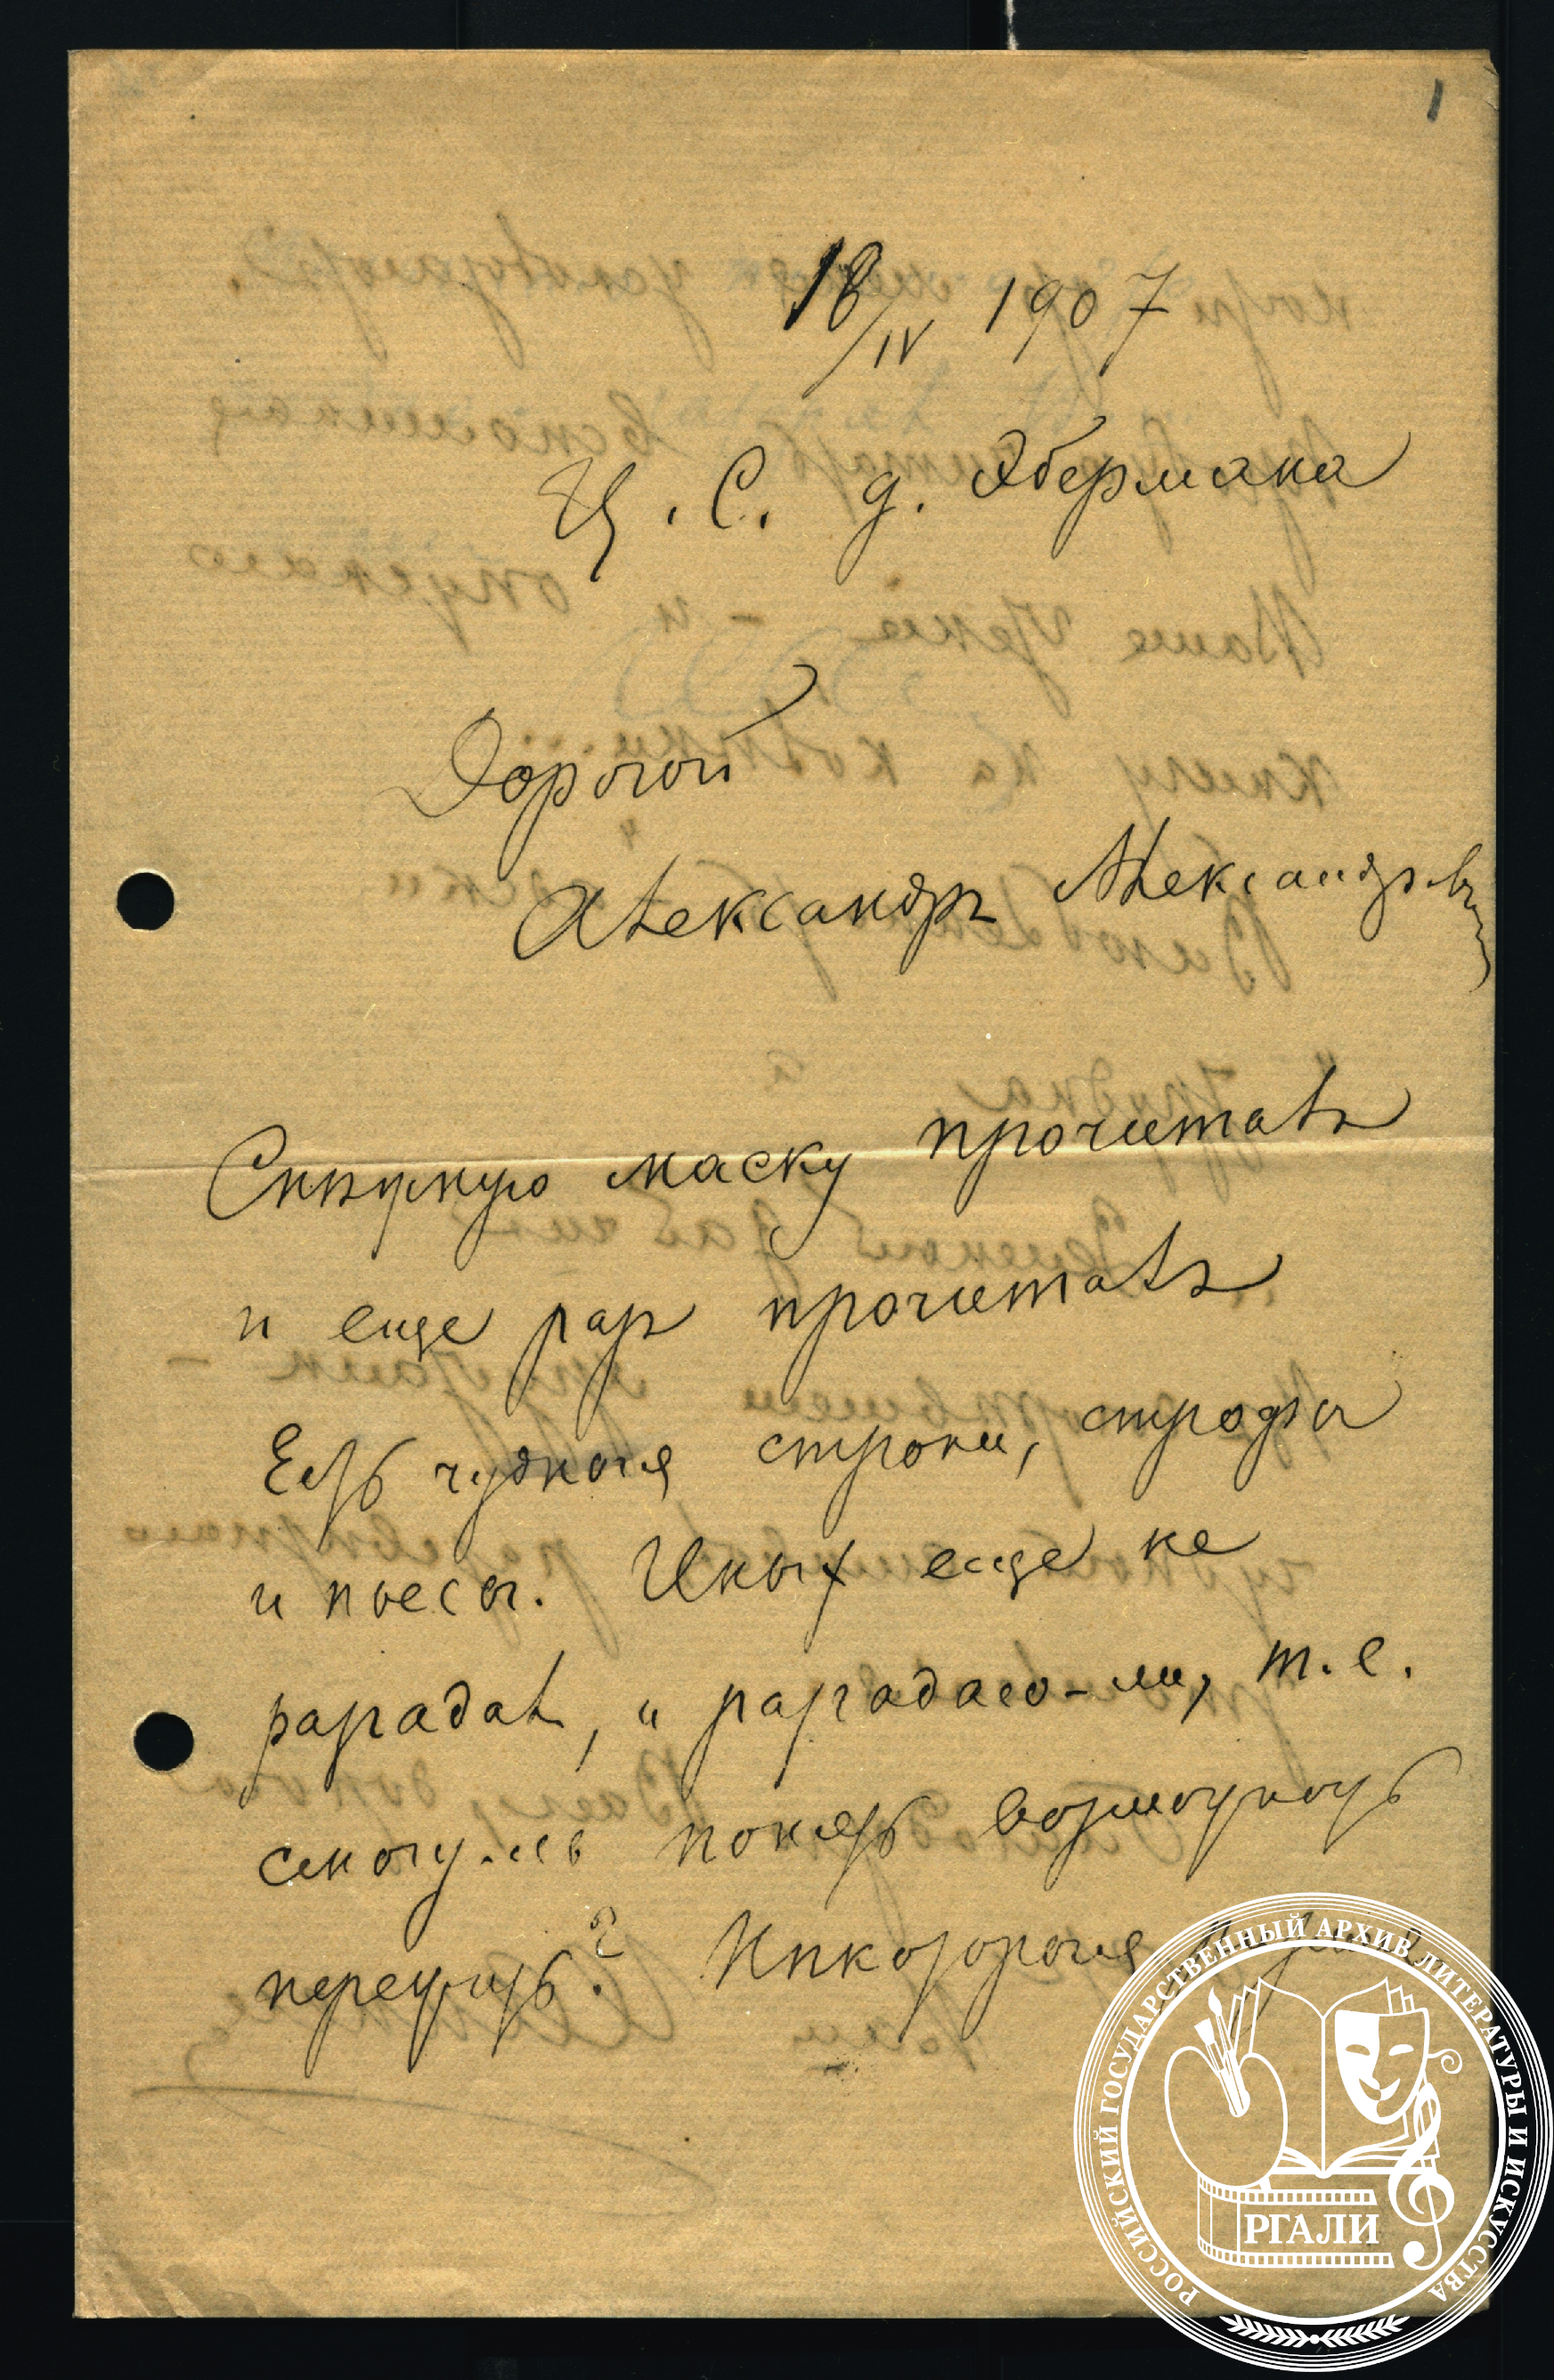 1
18/IV 1907
Ц. С. д. Эбермана
Дорогой
Александръ Александровичъ
Снѣжную маску прочиталъ
и еще разъ прочиталъ
Есть чудныя строки, строфы
и пьесы. Иныхъ еще не
разгадалъ, и разгадаю-ли, т. е.
смогу-ль понять возможность
пережить? Нѣкоторыя
РОССИЙСКИЙ ГОСУДАРСТВЕННЫЙ АРХИВ ЛИТЕРАТУРЫ И ИСКУССТВА
РГАЛИ